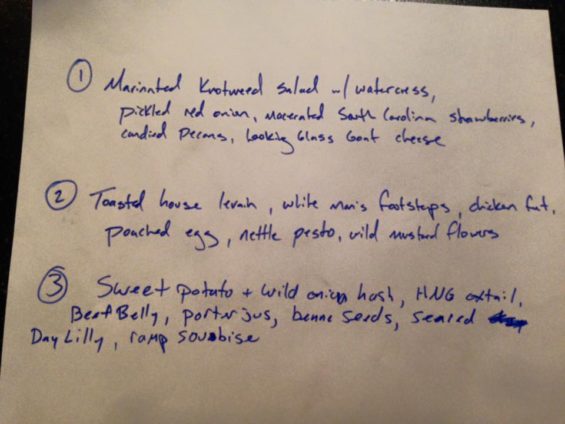 ① Marinated Knotweed salad w/ watercress,
pickled red onion, macerated South Carolina strawberries,
candied pecans, Looking Glass Goat cheese
② Toasted house levain, white man's footsteps, chicken fat,
poached egg, nettle pesto, wild mustard flowers
③ Sweet potato + wild onion hash, HNG oxtail,
Beef Belly, porter jus, benne seeds, seared
Day Lilly, ramp soubise